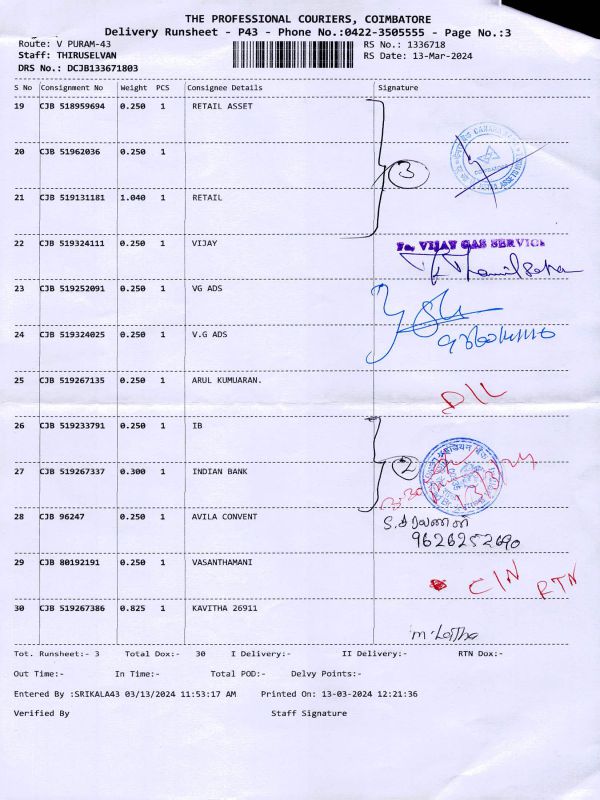 THE PROFESSIONAL COURIERS, COIMBATORE
Delivery Runsheet - P43 - Phone No.:0422-3505555 - Page No.:3
Route: V PURAM-43 RS No.: 1336718
Staff: THIRUSELVAN RS Date: 13-Mar-2024
DRS No.: DCJB133671803
S No Consignment No Weight PCS Consignee Details Signature
19 CJB 518959694 0.250 1 RETAIL ASSET
20 CJB 51962036 0.250 1
3
21 CJB 519131181 1.040 1 RETAIL
22 CJB 519324111 0.250 1 VIJAY
VIJAY GAS SERVICE
23 CJB 519252091 0.250 1 VG ADS
24 CJB 519324025 0.250 1 V.G ADS
25 CJB 519267135 0.250 1 ARUL KUMUARAN.
26 CJB 519233791 0.250 1 IB
2
27 CJB 519267337 0.300 1 INDIAN BANK
28 CJB 96247 0.250 1 AVILA CONVENT
9626252690
29 CJB 80192191 0.250 1 VASANTHAMANI
C/N RTN
30 CJB 519267386 0.825 1 KAVITHA 26911
M. Latha
Tot. Runsheet:- 3 Total Dox:- 30 I Delivery:- II Delivery:- RTN Dox:-
Out Time:- In Time:- Total POD:- Delvy Points:-
Entered By :SRIKALA43 03/13/2024 11:53:17 AM Printed On: 13-03-2024 12:21:36
Verified By Staff Signature